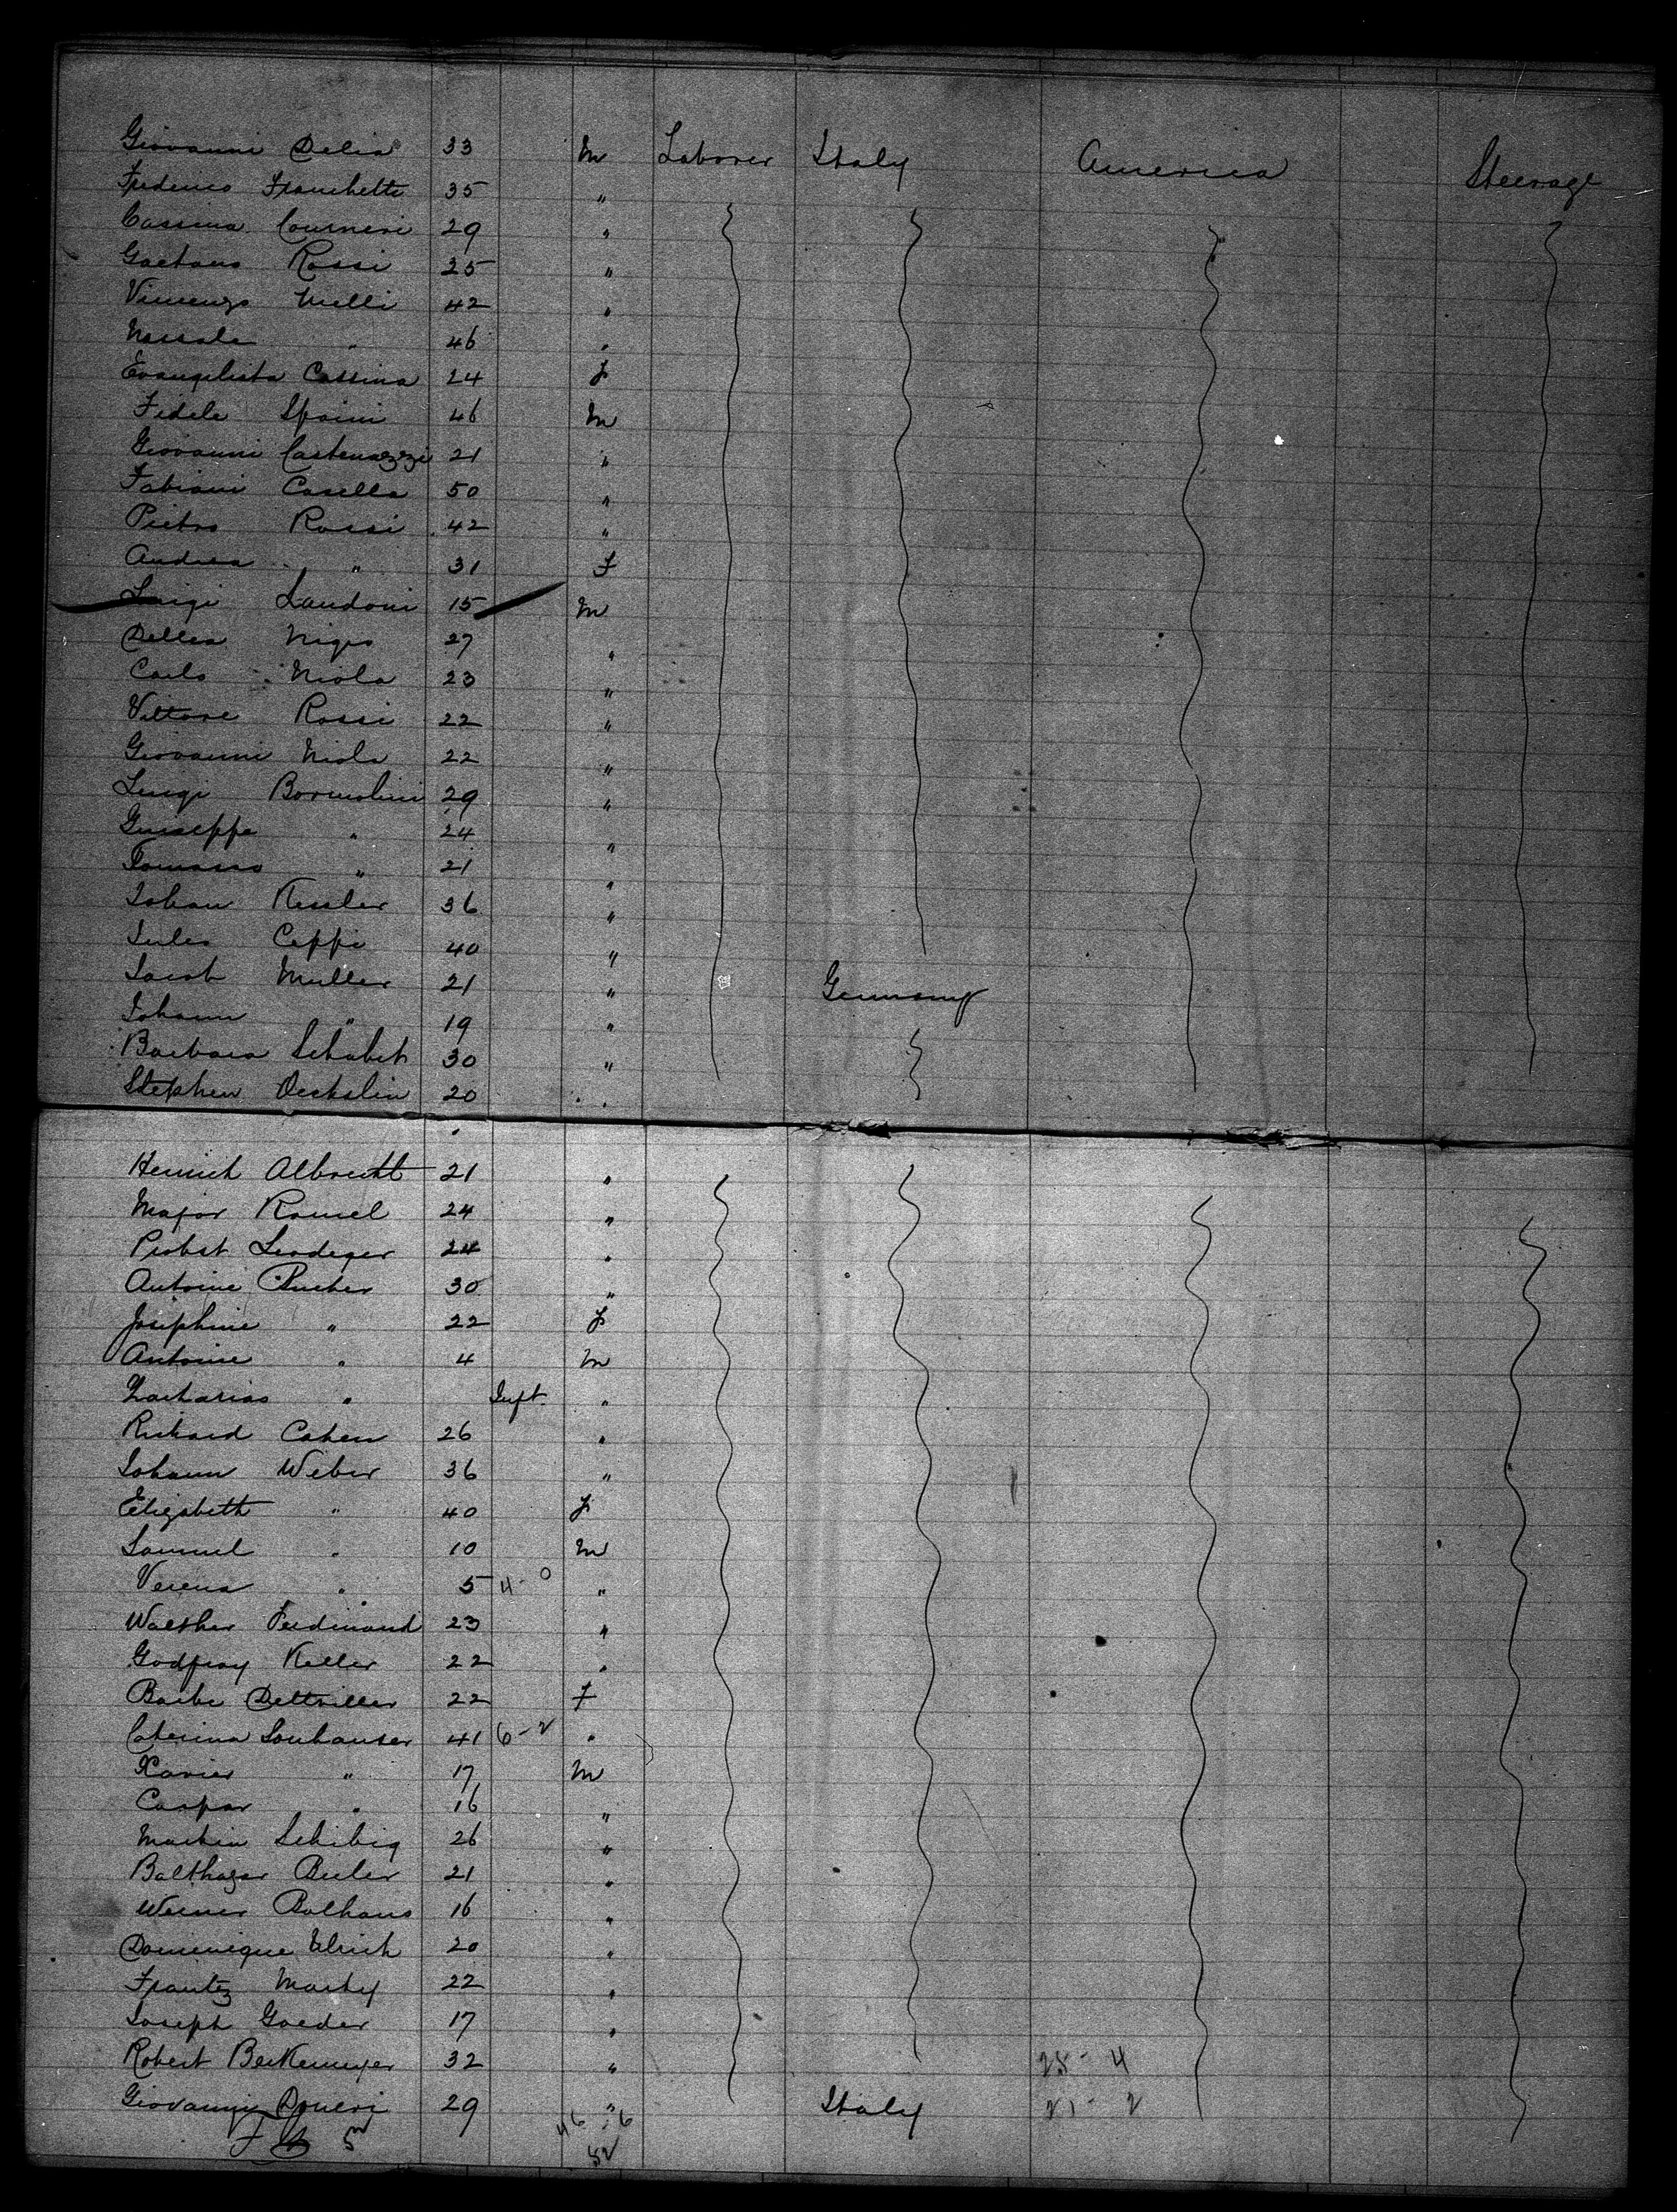 Giovanni Delia 33 M Laborer Italy America Steerage
Frederico Franchetti 35 "
Cassina 29 "
Gaetano Rossi 25 "
Vincenzo Melli 42 "
" 46 "
Evangelista Cassina 24 F
Fidele Spaini 46 M
Giovanni Castenazzi 21 "
Fabiani Casella 50 "
Pietro Rossi 42 "
Andrea " 31 F
Luigi Landoni 15 M
Dellea Nigro 27 "
Carlo Niola 23 "
Vittore Rossi 22 "
Giovanni Niola 22 "
Luigi Bormolini 29 "
Guiseppe " 24 "
Tomasso " 21 "
Johan Kessler 36 "
Jules Ceppi 40 "
Jacob Muller 21 " Germany
Johann " 19 "
Barbara 30 "
Stephen 20 "
Heinrich Albrecht 21 "
Major Romel 24 "
Probst Leodeger 24 "
Antoine 30 "
Josephine " 22 F
Antoine " 4 M
Zacharias " Inft "
Richard Cahen 26 "
Johann Weber 36 "
Elizabeth " 40 F
Samuel " 10 M
Verena " 5 4-0 "
Walther Ferdinand 23 "
Godfray Keller 22 "
Barbe Dettviller 22 F
Caterina 41 6-2 "
Xavier " 17 M
Caspar " 16 "
Martin Schibig 26 "
Balthazar Buler 21 "
Werner Balhaus 16 "
Domenique Ulrich 20 "
Frantz Marty 22 "
Joseph Goeder 17 "
Robert Berkemeyer 32 " 25-4
Giovanni 29 " Italy 21-2
46 6
52